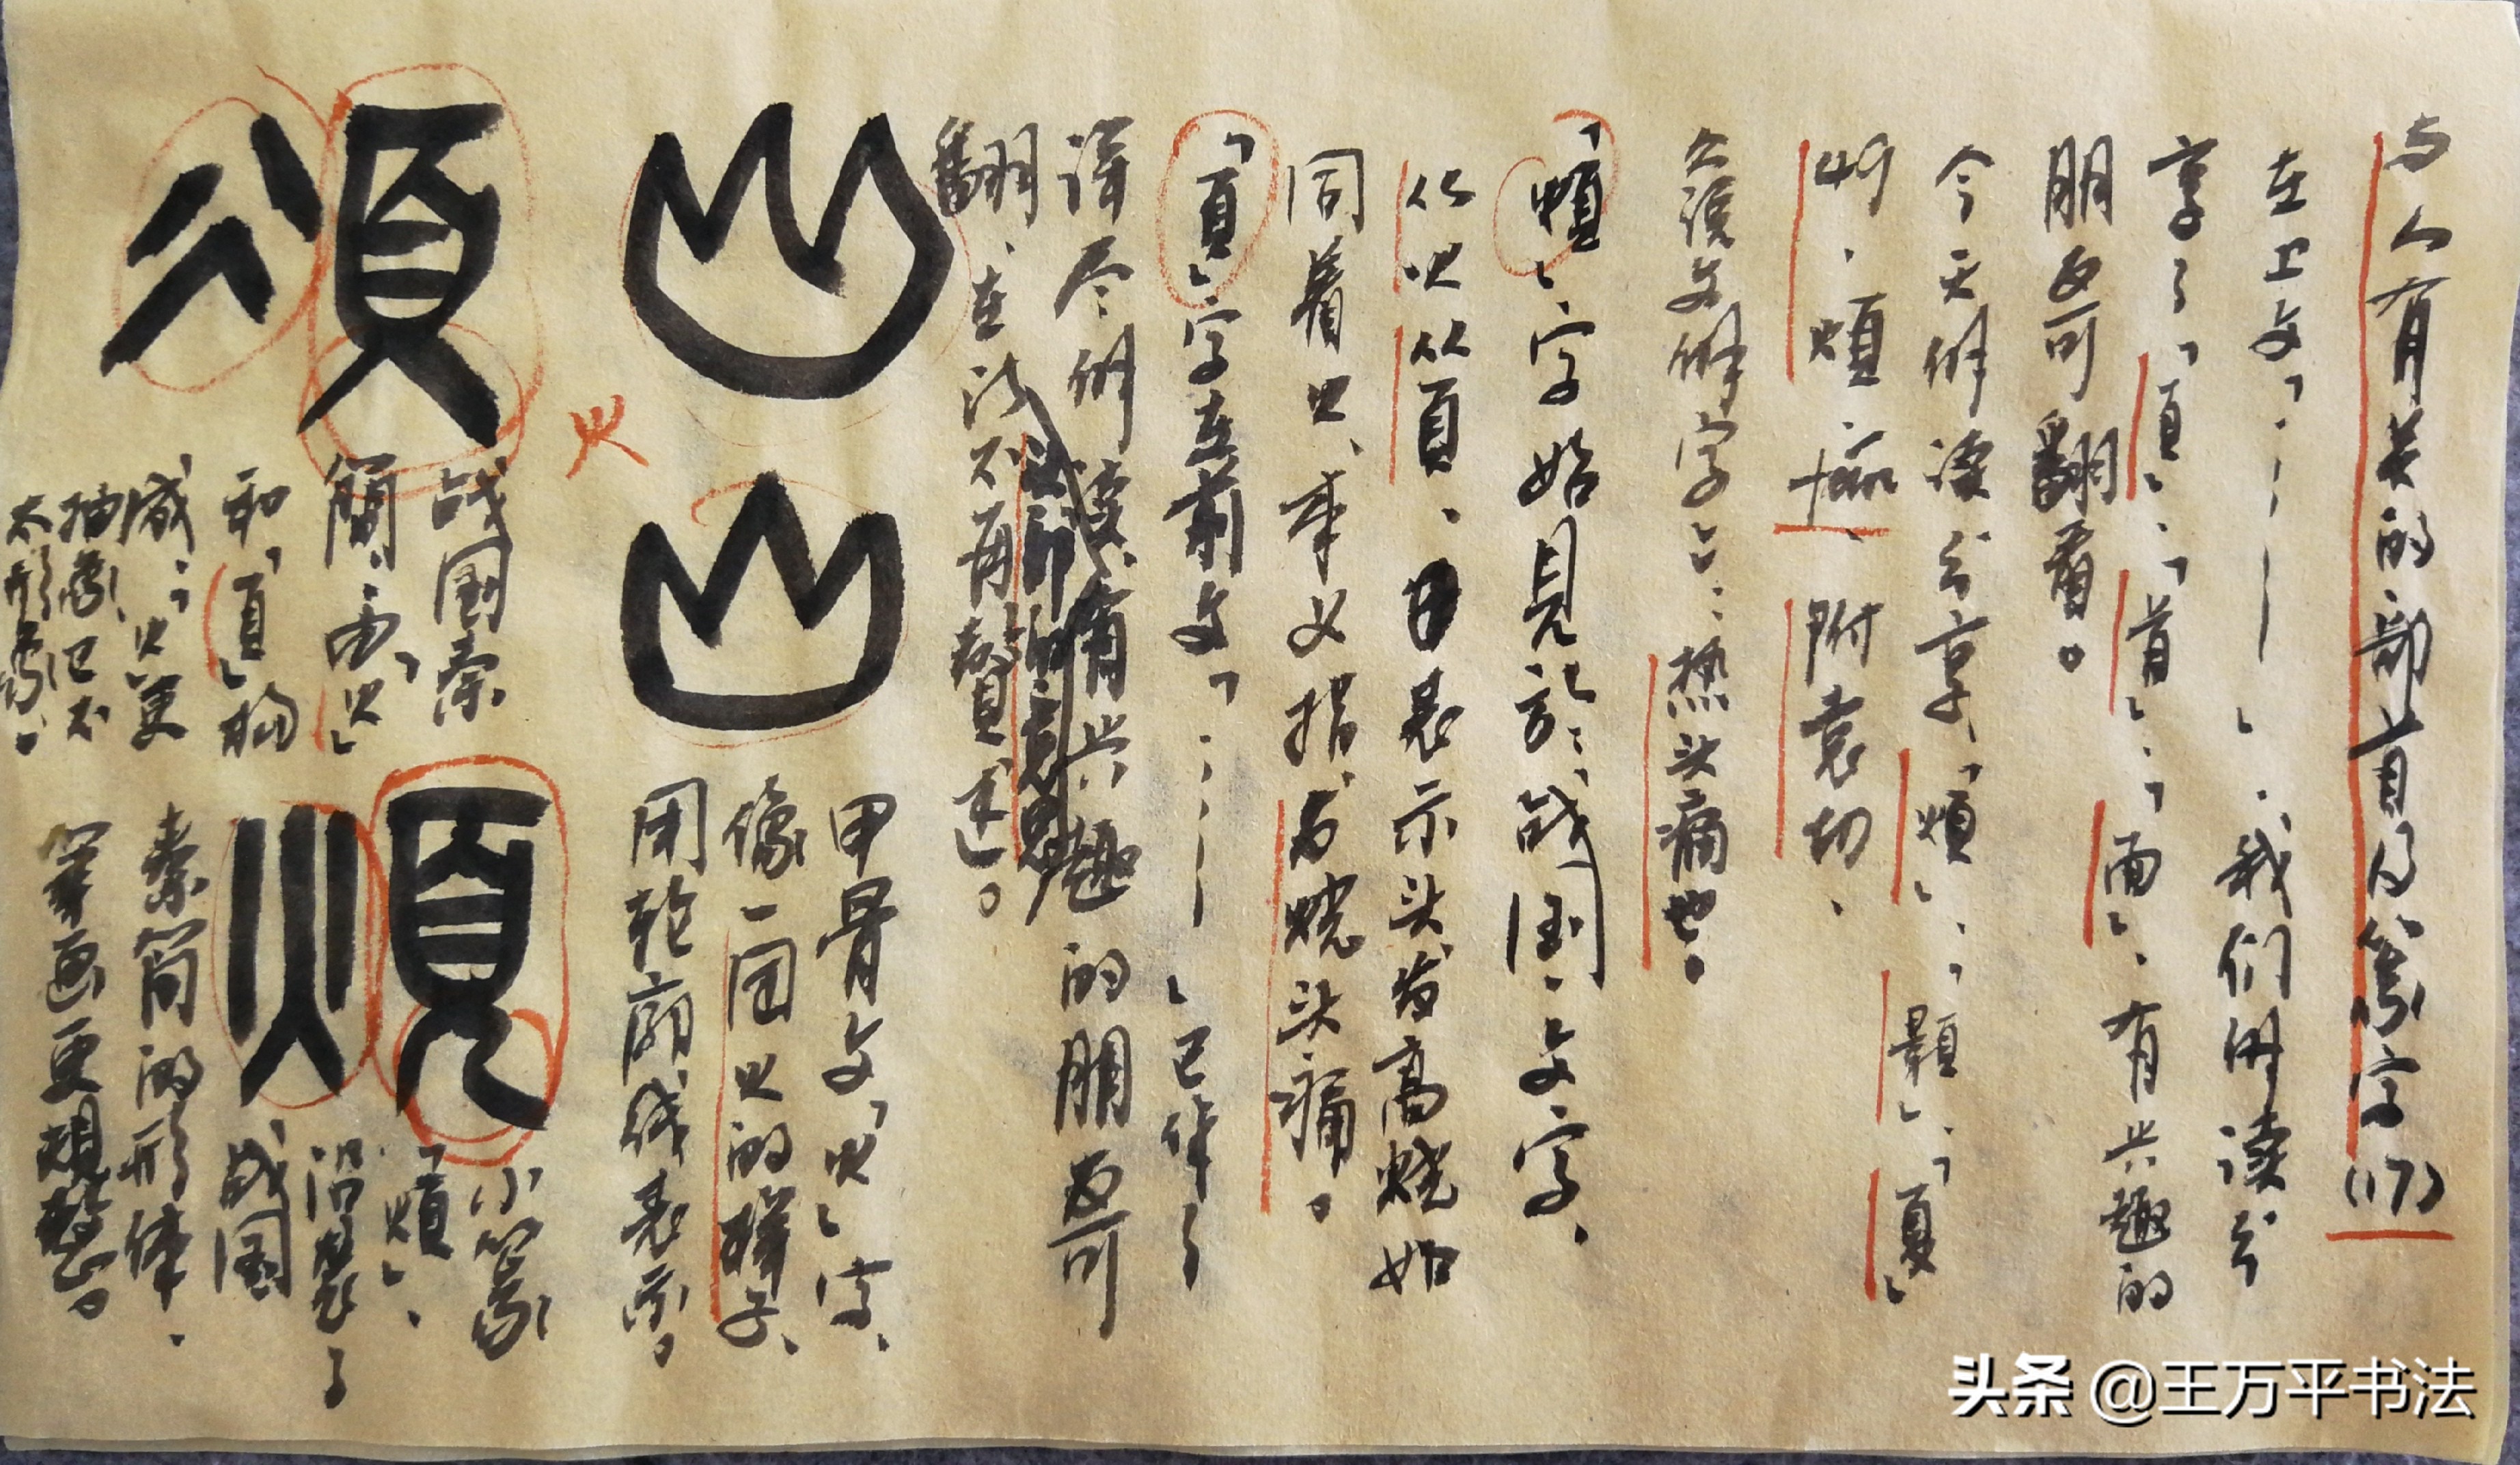 与人有关的部首及篆字(17)
在上文「……——」,我们解读分
享了「頁」、「首」、「面」,有兴趣的
朋友可翻看。
今天解读分享「煩」、「顯」、「夏」
49、煩
附袁切、
《说文解字》:热头痛也。
「煩」字始見於战国文字、
从火从頁、表示头发高烧如
同着火、本义指发烧头痛。
「頁」字在前文「……——」已作了
详尽解读、有兴趣的朋友可
翻、在这不再赘述。
甲骨文「火」字、
像一团火的样子、
用轮廓线表示。
火
战国秦
簡、由「火」
和「頁」构
成、「火」更
抽象、已不
太形象。
小篆
「煩」、
沿袭了
战国
秦简的形体、
笔画更规整。
头条 @王万平书法